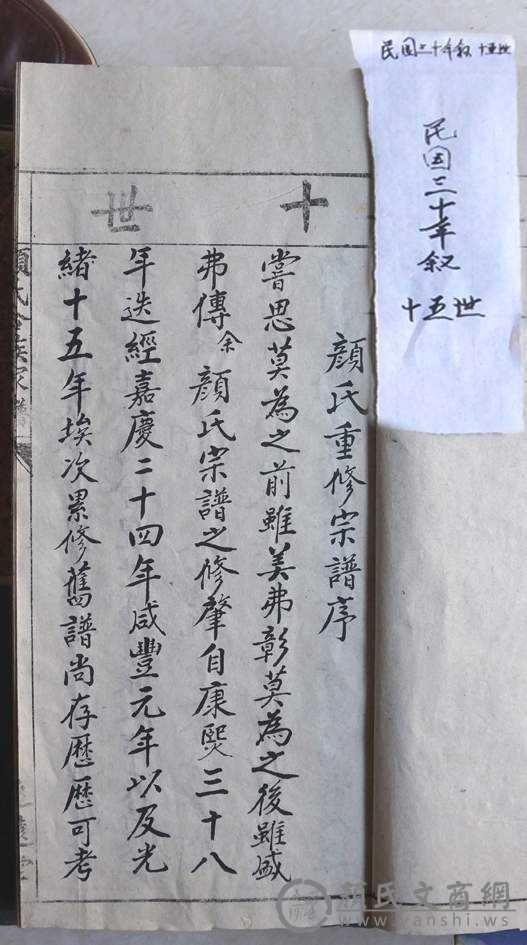 民国三十年叙 十五世
民国三十年叙
十五世
十世
顏氏重修宗譜序
嘗思莫為之前雖美弗彰莫為之後雖盛
弗傳余顏氏宗譜之修肇自康熙三十八
年迭經嘉慶二十四年咸豐元年以及光
緒十五年埃次累修舊譜尚存歷歷可考
顏氏合族家譜
顏氏文商網
www.yanshi.ws